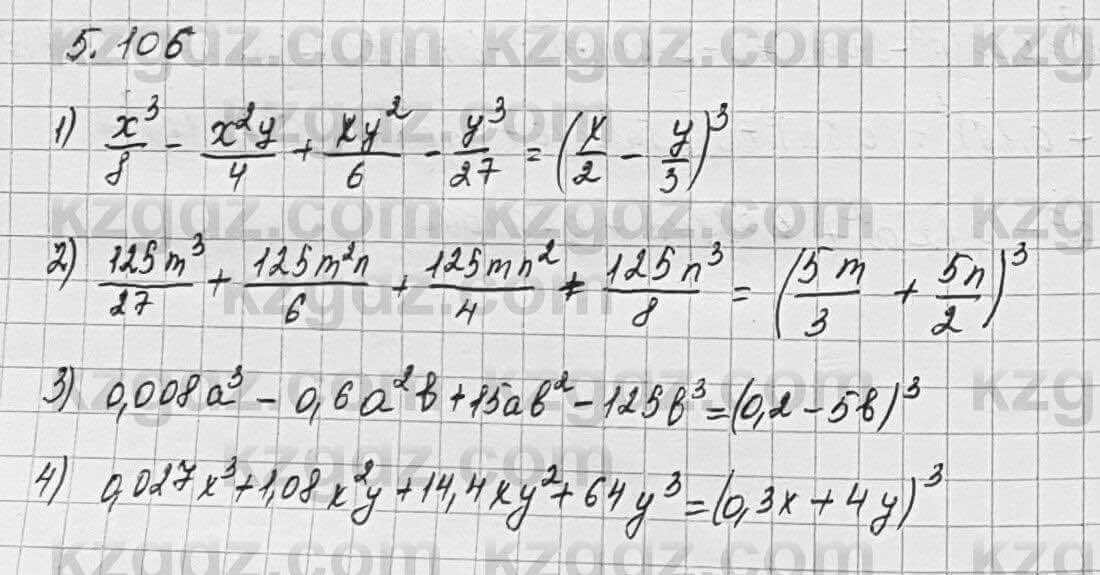 5.106
1) x³/8 - x²y/4 + xy²/6 - y³/27 = (x/2 - y/3)³
2) 125m³/27 + 125m²n/6 + 125mn²/4 + 125n³/8 = (5m/3 + 5n/2)³
3) 0,008a³ - 0,6a²b + 15ab² - 125b³ = (0,2 - 5b)³
4) 0,027x³ + 1,08x²y + 14,4xy² + 64y³ = (0,3x + 4y)³
kzgdz.com